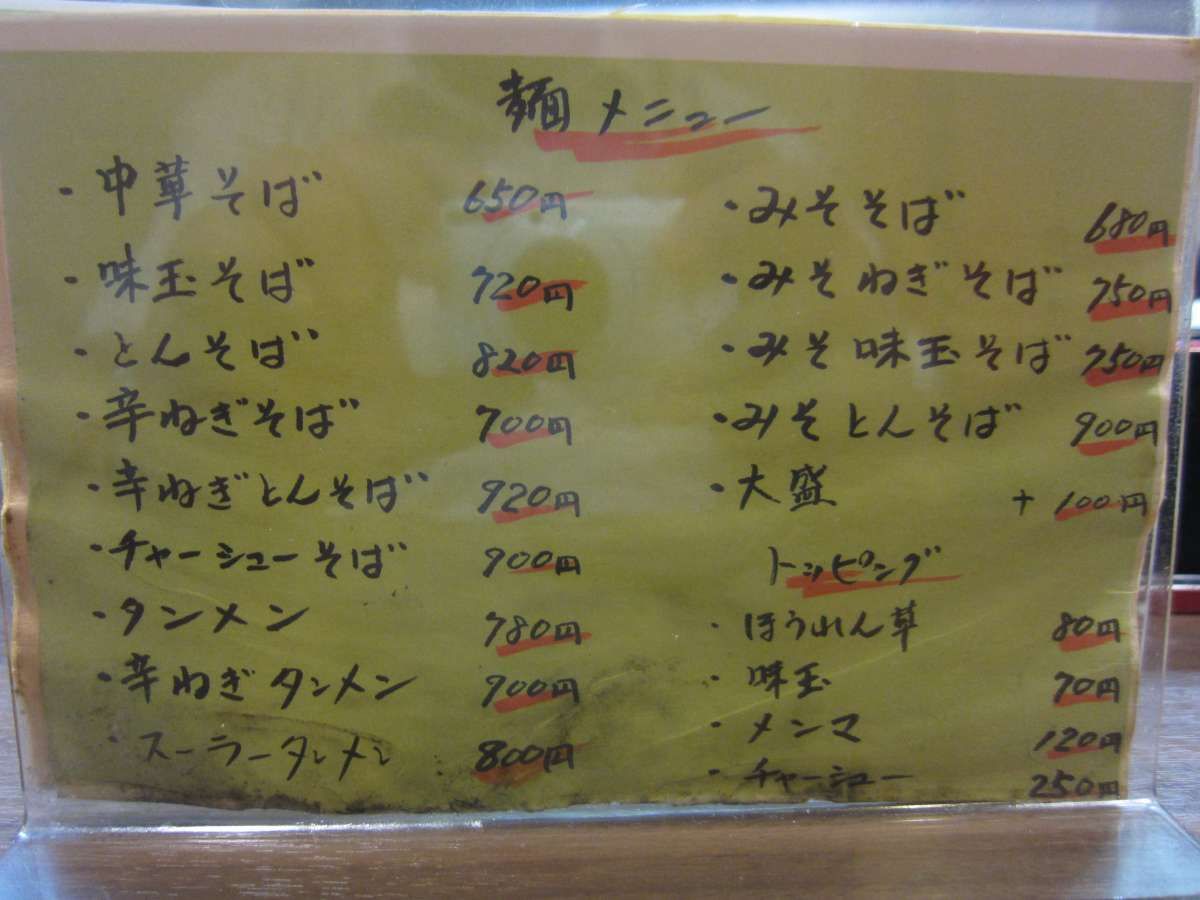 麺メニュー
・中華そば 650円
・味玉そば 720円
・とんそば 820円
・辛ねぎそば 700円
・辛ねぎとんそば 920円
・チャーシューそば 900円
・タンメン 780円
・辛ねぎタンメン 900円
・スーラータンメン 800円
・みそそば 680円
・みそねぎそば 750円
・みそ味玉そば 750円
・みそとんそば 900円
・大盛 +100円
トッピング
・ほうれん草 80円
・味玉 70円
・メンマ 120円
・チャーシュー 250円